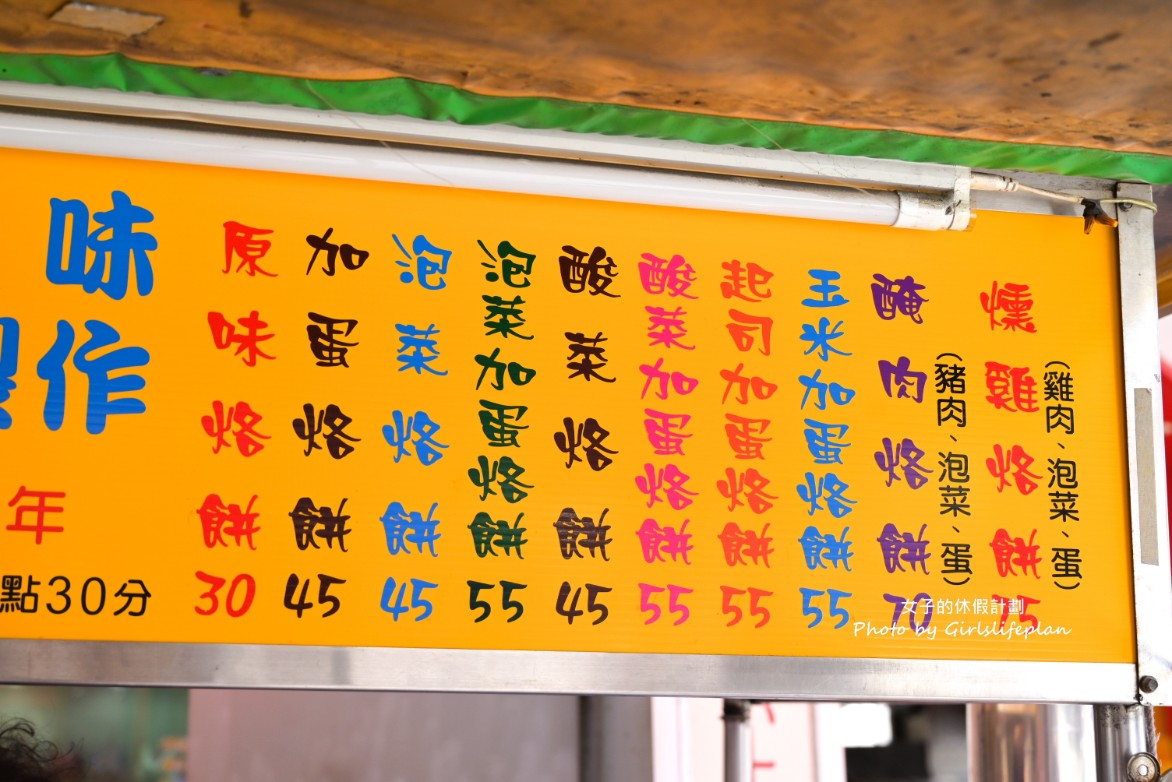 味
作
年
點30分
原味烙餅30
加蛋烙餅45
泡菜烙餅45
泡菜加蛋烙餅55
酸菜烙餅45
酸菜加蛋烙餅55
起司加蛋烙餅55
玉米加蛋烙餅55
醃肉烙餅70
(豬肉、泡菜、蛋)
燻雞烙餅
(雞肉、泡菜、蛋)
女子的休假計劃
Photo by Girlslifeplan